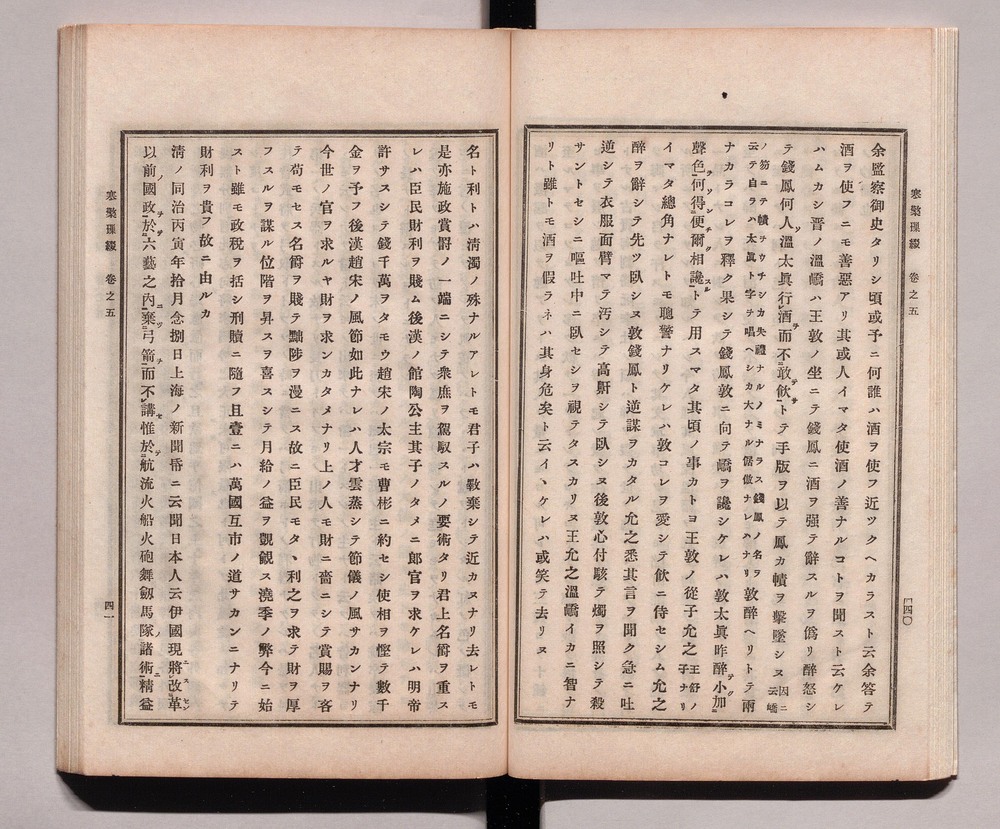 寒檠璅綴 卷之五
余監察御史タリシ頃或予ニ何誰ハ酒ヲ使フ近ツクヘカラスト云余答テ
酒ヲ使フニモ善惡アリ其或人イマタ使酒ノ善ナルコトヲ聞スト云ケレ
ハムカシ晋ノ溫嶠ハ王敦ノ坐ニテ錢鳳ニ酒ヲ强テ辭スルヲ僞リ醉怒シ
テ錢鳳何人ソ溫太眞行酒而不敢飮トテ手版ヲ以テ鳳カ幘ヲ擊墜シヌ因ニ云嶠
ノ笏ニテ幘ヲウチシカ失禮ナルノミナラス錢鳳ノ名ヲ
云テ自ラハ太眞ト字ヲ唱ヘシカ大ナル倨傲ナレハナリ敦醉ヘリトテ兩
ナカラコレヲ釋ク果シテ錢鳳敦ニ向テ嶠ヲ讒シケレハ敦太眞昨醉小加
聲色何得便爾相讒トテ用スマタ其頃ノ事カトヨ王敦ノ從子允之王舒ノ子ナリ
イマタ總角ナレトモ聰警ナリケレハ敦コレヲ愛シテ飮ニ侍セシム允之
醉ヲ辭シテ先ツ臥シヌ敦錢鳳ト逆謀ヲカタル允之悉其言ヲ聞ク急ニ吐
逆シテ衣服面臂マテ汚シテ高鼾シテ臥シヌ後敦心付駭テ燭ヲ照シテ殺
サントセシニ嘔吐中ニ臥セシヲ視テタスカリヌ王允之溫嶠イカニ智ナ
リト雖トモ酒ヲ假ラネハ其身危矣ト云イヽケレハ或笑テ去リヌ
四〇
名ト利トハ淸濁ノ殊ナルアレトモ君子ハ斁棄シテ近カヌナリ去レトモ
是亦施政賞罸ノ一端ニシテ衆庶ヲ駕馭スルノ要術タリ君上名爵ヲ重ス
レハ臣民財利ヲ賤ム後漢ノ館陶公主其子ノタメニ郎官ヲ求ケレハ明帝
許サスシテ錢千萬ヲタモウ趙宋ノ太宗モ曹彬ニ約セシ使相ヲ慳テ數千
金ヲ予フ後漢趙宋ノ風節如此ナレハ人才雲蒸シテ節儀ノ風サカンナリ
今世ノ官ヲ求ルヤ財ヲ求ンカタメナリ上ノ人モ財ニ嗇ニシテ賞賜ヲ吝
テ苟モセス名爵ヲ賤テ黜陟ヲ漫ニス故ニ臣民モタヽ利之ヲ求テ財ヲ厚
フスルヲ謀ル位階ヲ昇スヲ喜スシテ月給ノ益ヲ覬覦ス澆季ノ弊今ニ始
スト雖モ政稅ヲ括シ刑贖ニ隨フ且壹ニハ萬國互市ノ道サカンニナリテ
財利ヲ貴フ故ニ由ルカ
淸ノ同治丙寅年拾月念捌日上海ノ新聞帋ニ云聞日本人云伊國現將改革
以前國政於六藝之內棄弓箭而不講惟於航流火船火砲舞劔馬隊諸術精益
寒檠璅綴 卷之五
四一